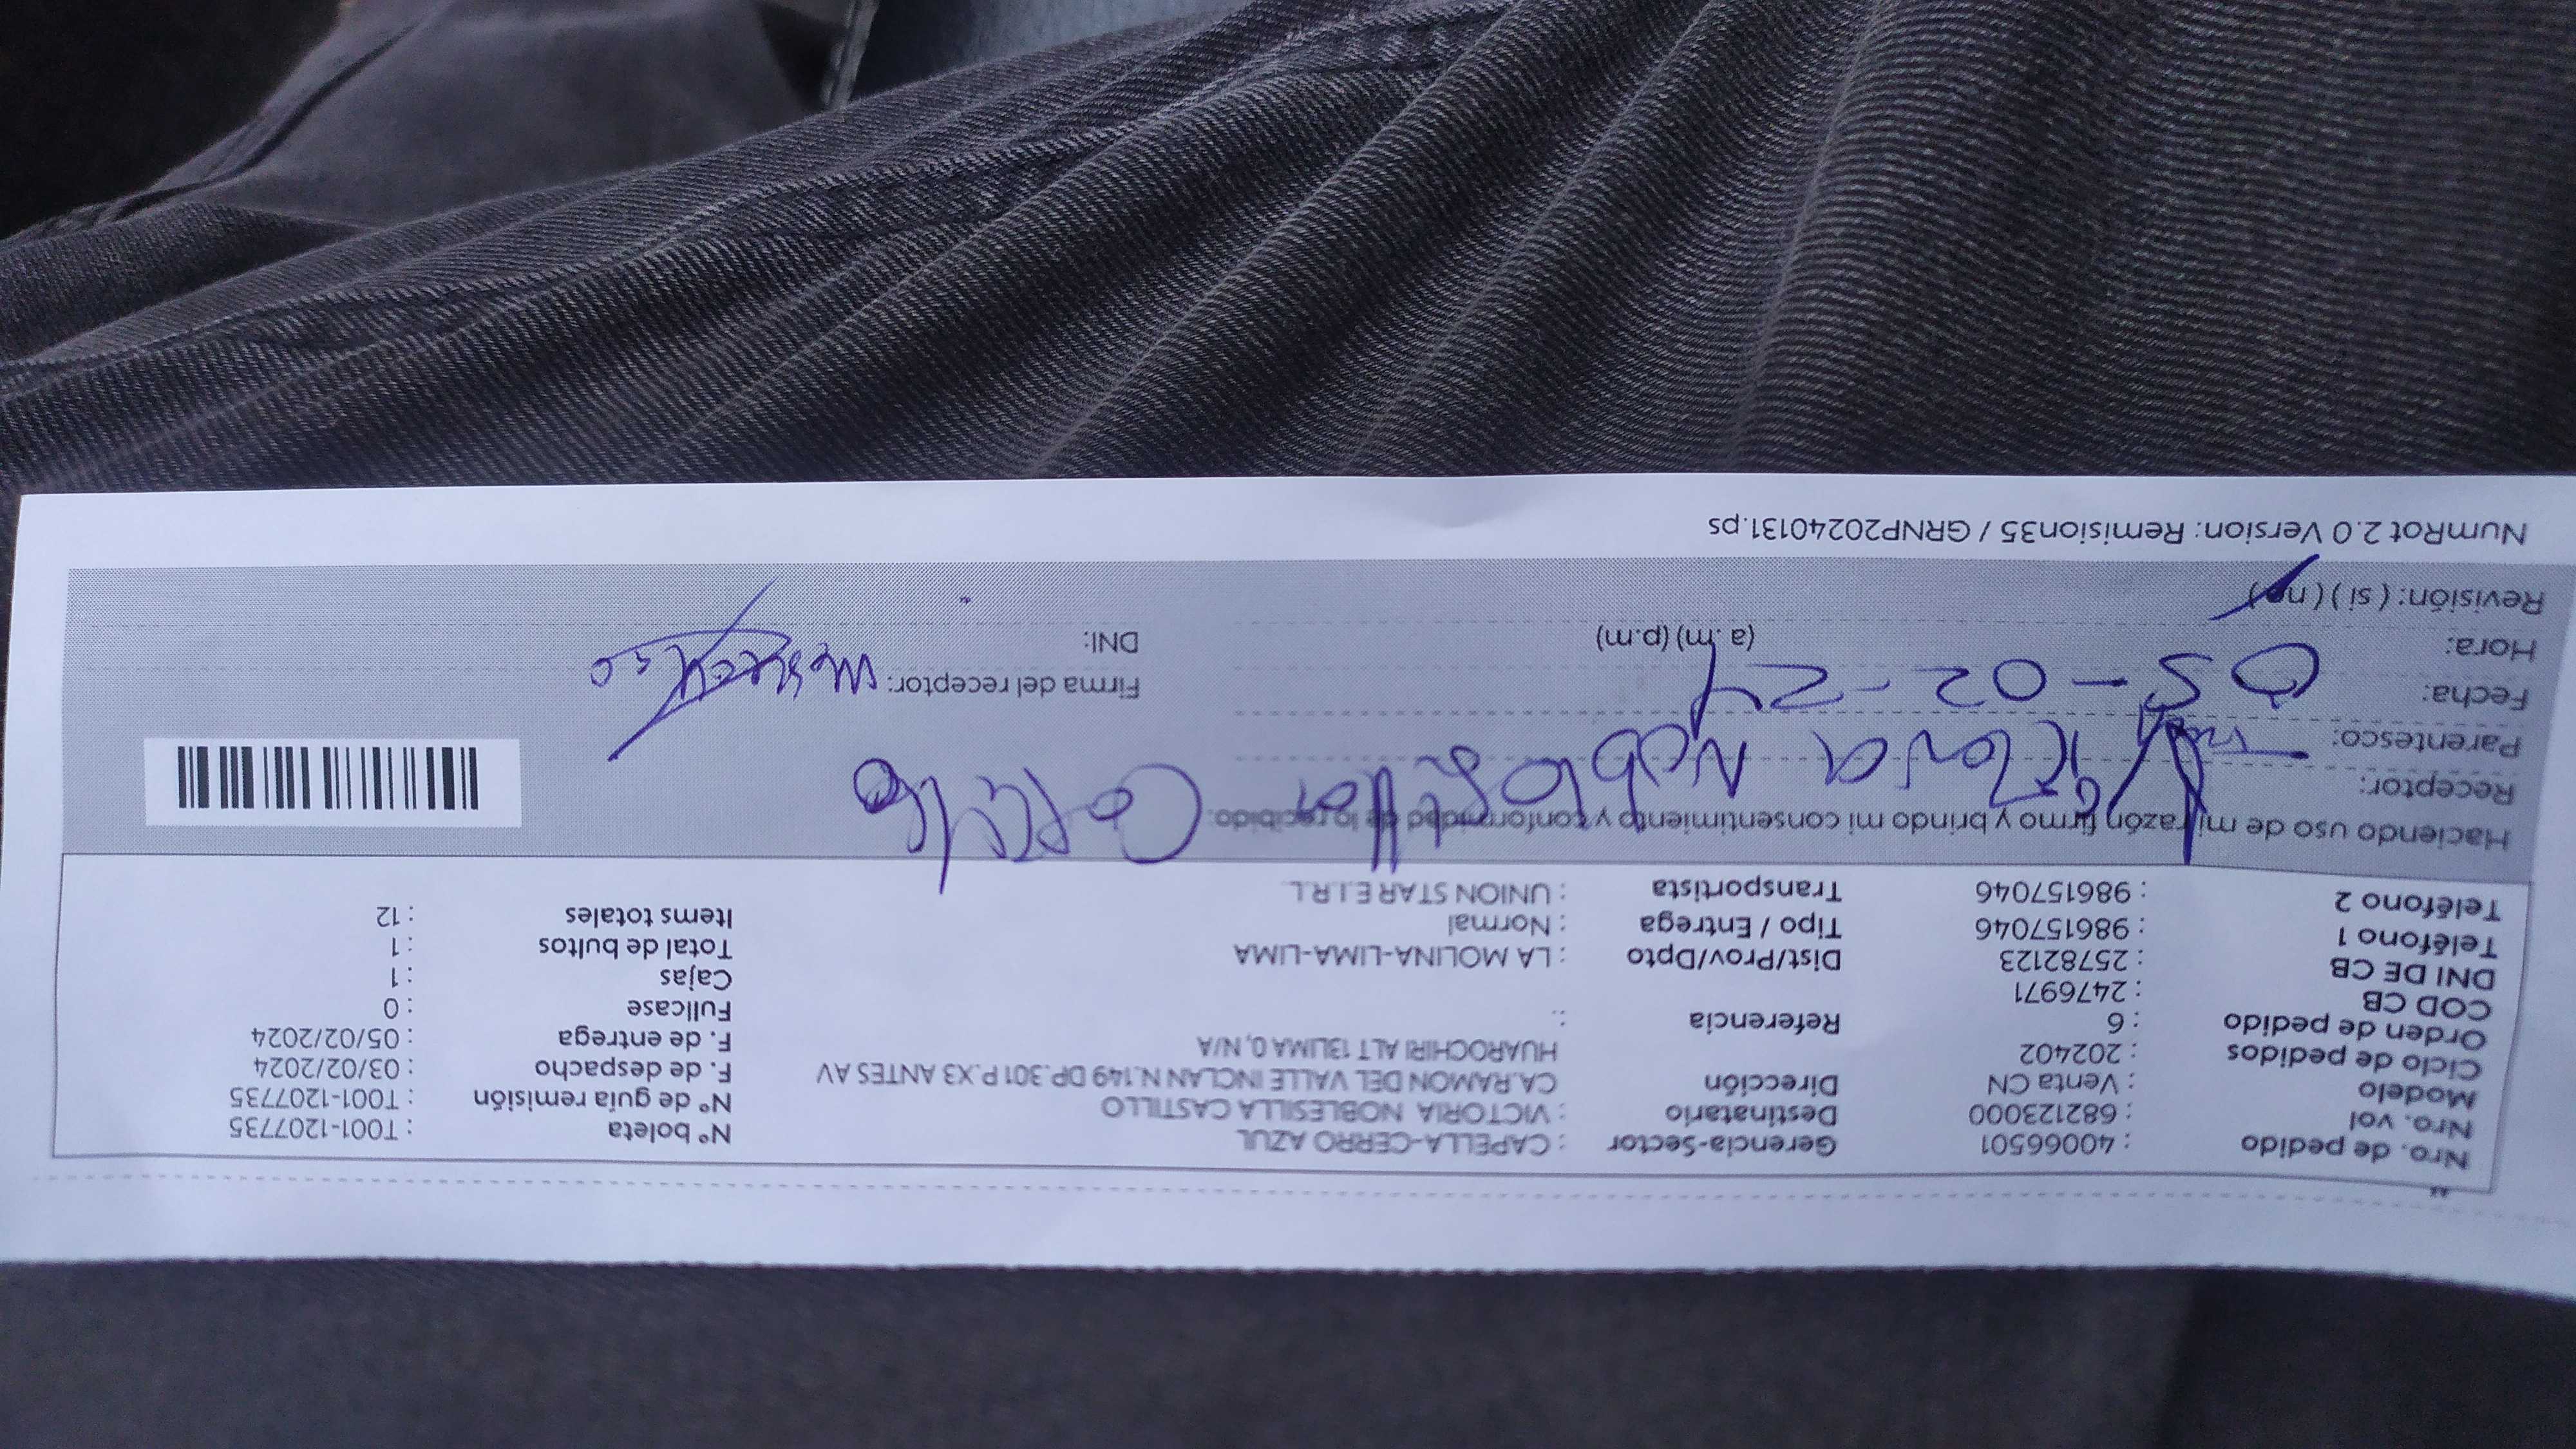 Nro. de pedido : 40066501 Gerencia-Sector : CAPELLA-CERRO AZUL Nº boleta : T001-1207735
Nro. vol : 682123000 Destinatario : VICTORIA NOBLESILLA CASTILLO Nº de guía remisión : T001-1207735
Modelo : Venta CN Dirección CA.RAMON DEL VALLE INCLAN N.149 DP.301 P.X3 ANTES AV F. de despacho : 03/02/2024
Ciclo de pedidos : 202402 HUAROCHIRI ALT 13LIMA 0, N/A F. de entrega : 05/02/2024
Orden de pedido : 6 Referencia : Fullcase : 0
COD CB : 2476971 Cajas : 1
DNI DE CB : 25782123 Dist/Prov/Dpto : LA MOLINA-LIMA-LIMA Total de bultos : 1
Teléfono 1 : 986157046 Tipo / Entrega : Normal Items totales : 12
Teléfono 2 : 986157046 Transportista : UNION STAR E.I.R.L
Haciendo uso de mi razón firmo y brindo mi consentimiento y conformidad de lo recibido.
Receptor: Castillo
Parentesco:
Fecha: 05-02-24 Firma del receptor:
Hora: (a.m) (p.m) DNI:
Revisión: (si) (no)
NumRot 2.0 Version: Remision35 / GRNP20240131.ps